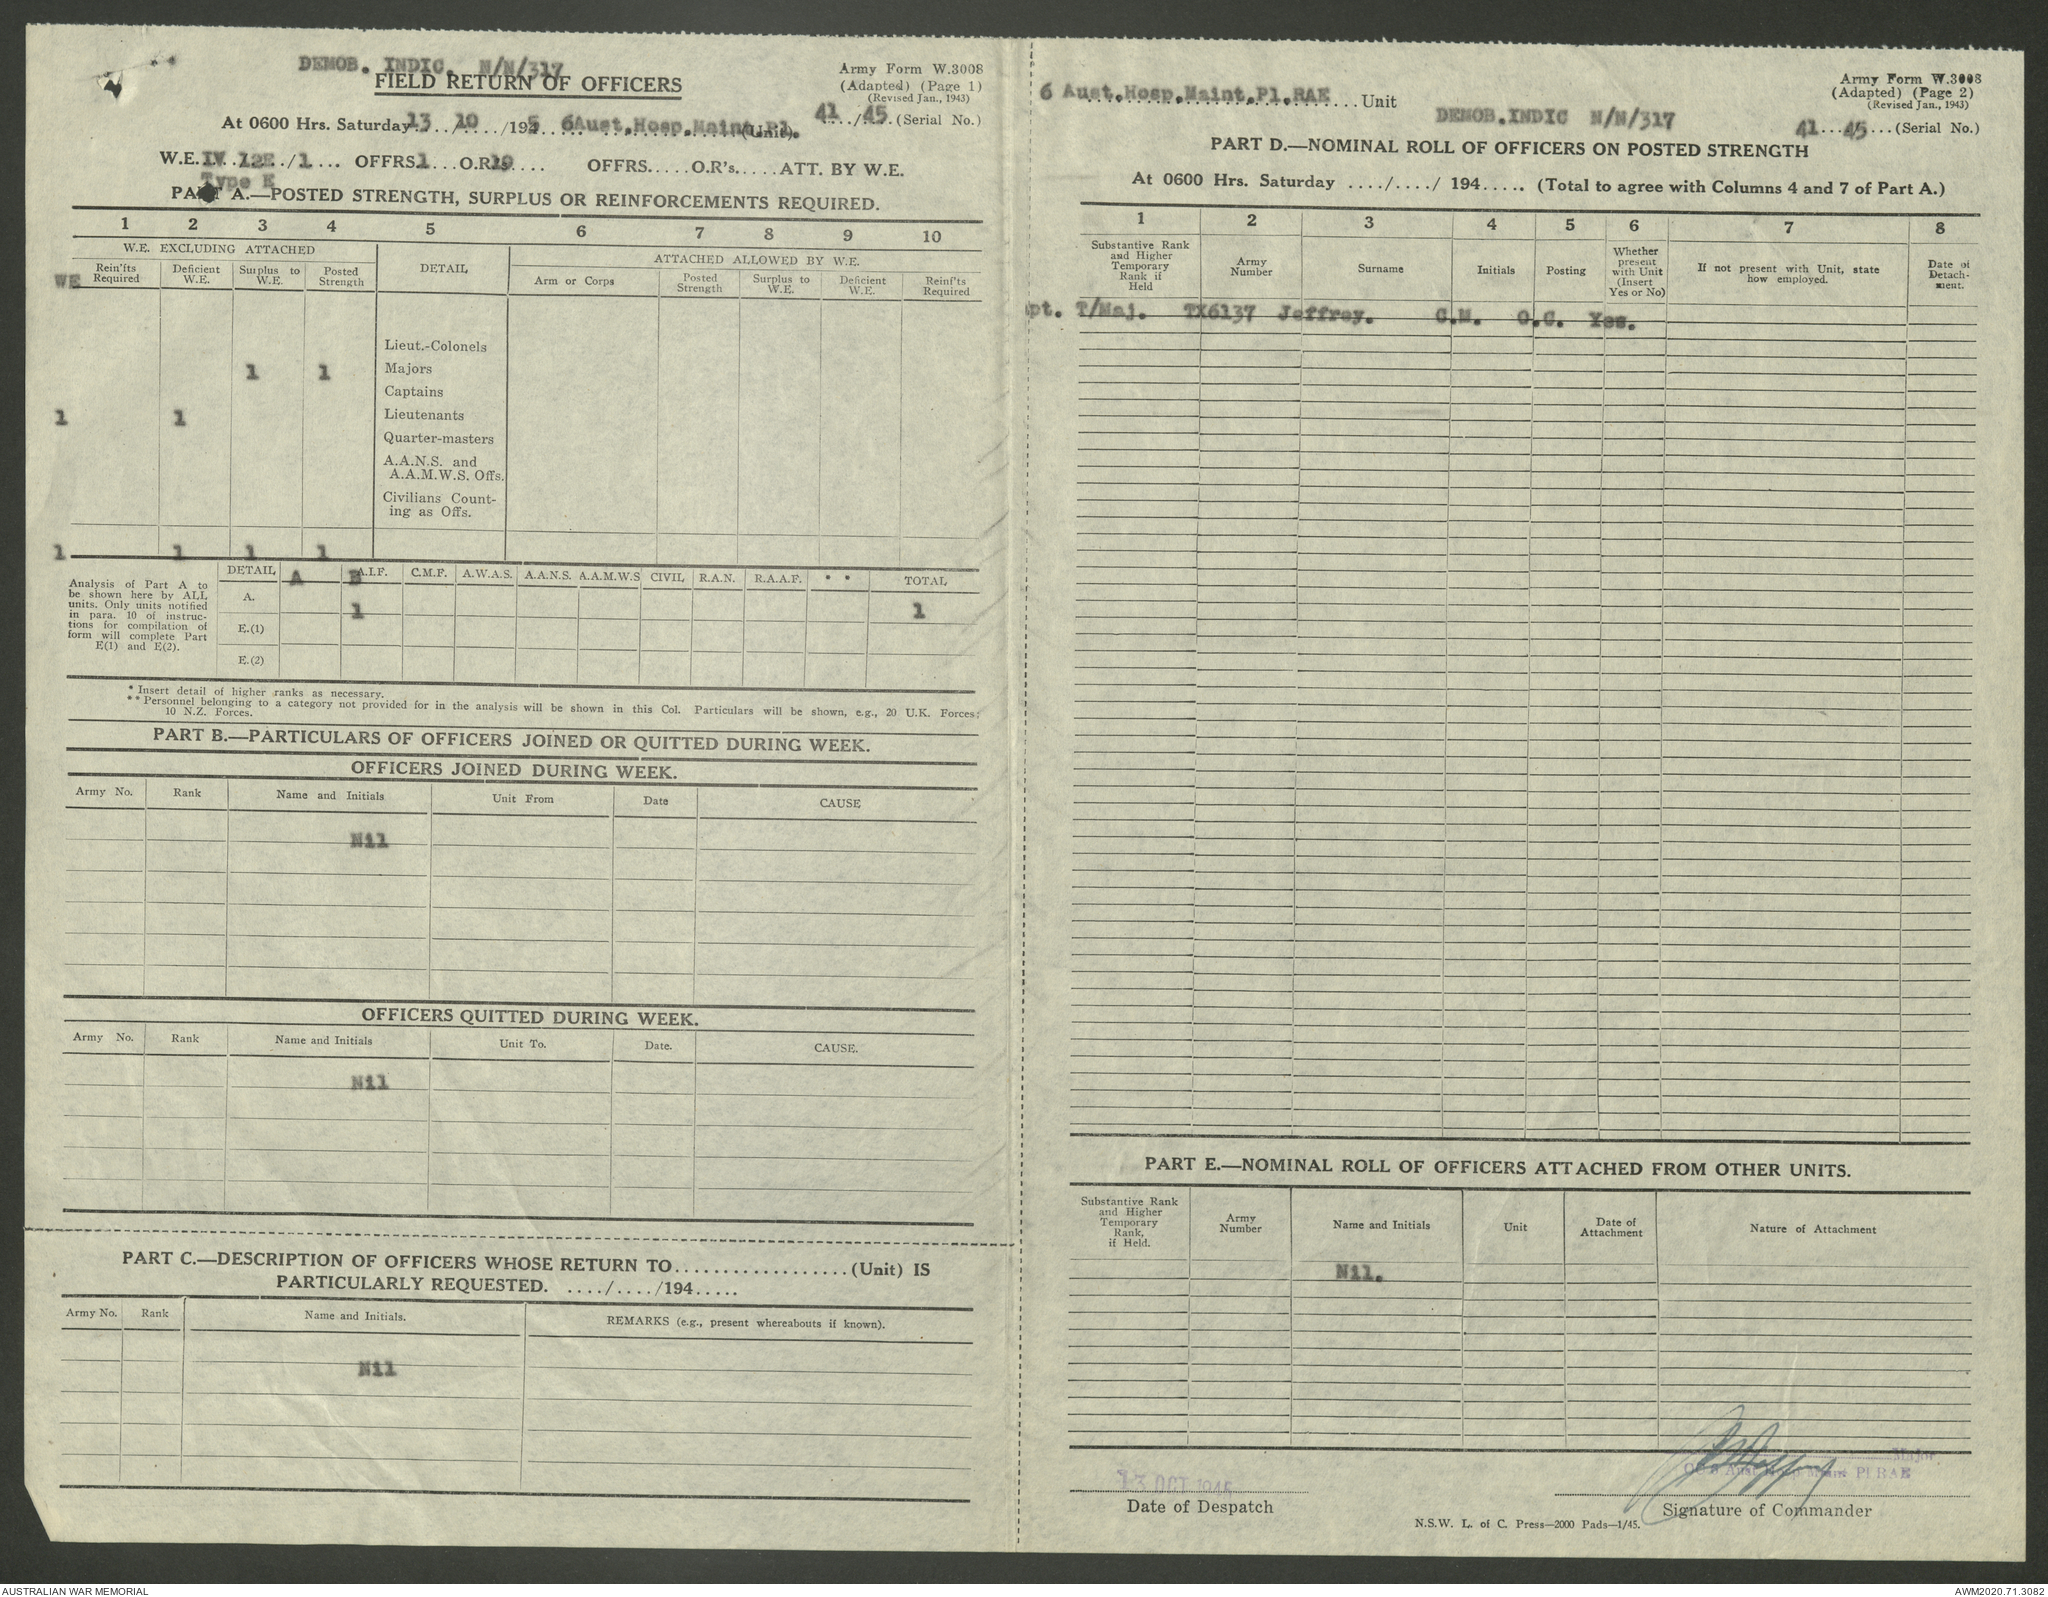 DEMOB. INDIC. N/N/317
FIELD RETURN OF OFFICERS
Army Form W.3008
(Adapted) (Page 1)
(Revised Jan., 1943)
At 0600 Hrs. Saturday 13 /10 /1945 6Aust.Hosp.Maint.Pl. (Unit). 41/45.(Serial No.)
W.E.IV 12E/1 OFFRS1 O.R19 OFFRS.....O.R's.....ATT. BY W.E.
Type E
PART A.—POSTED STRENGTH, SURPLUS OR REINFORCEMENTS REQUIRED.
1 2 3 4 5 6 7 8 9 10
W.E. EXCLUDING ATTACHED
DETAIL
ATTACHED ALLOWED BY W.E.
WE
Rein'fts Required
Deficient W.E.
Surplus to W.E.
Posted Strength
Arm or Corps
Posted Strength
Surplus to W.E.
Deficient W.E.
Reinf'ts Required
Lieut.-Colonels
1 1 Majors
Captains
1 1 Lieutenants
Quarter-masters
A.A.N.S. and
A.A.M.W.S. Offs.
Civilians Count-
ing as Offs.
1 1 1 1
Analysis of Part A to
be shown here by ALL
units. Only units notified
in para. 10 of instruc-
tions for compilation of
form will complete Part
E(1) and E(2).
DETAIL A B A.I.F. C.M.F. A.W.A.S. A.A.N.S. A.A.M.W.S CIVIL R.A.N. R.A.A.F. * * TOTAL
A. 1 1
E.(1)
E.(2)
* Insert detail of higher ranks as necessary.
** Personnel belonging to a category not provided for in the analysis will be shown in this Col. Particulars will be shown, e.g., 20 U.K. Forces;
10 N.Z. Forces.
PART B.—PARTICULARS OF OFFICERS JOINED OR QUITTED DURING WEEK.
OFFICERS JOINED DURING WEEK.
Army No. Rank Name and Initials Unit From Date CAUSE
Nil
OFFICERS QUITTED DURING WEEK.
Army No. Rank Name and Initials Unit To. Date. CAUSE.
Nil
PART C.—DESCRIPTION OF OFFICERS WHOSE RETURN TO..................(Unit) IS
PARTICULARLY REQUESTED. ..../..../194.....
Army No. Rank Name and Initials. REMARKS (e.g., present whereabouts if known).
Nil
6 Aust.Hosp.Maint.Pl.RAE Unit
DEMOB.INDIC N/N/317
Army Form W.3008
(Adapted) (Page 2)
(Revised Jan., 1943)
41...45...(Serial No.)
PART D.—NOMINAL ROLL OF OFFICERS ON POSTED STRENGTH
At 0600 Hrs. Saturday ..../..../ 194..... (Total to agree with Columns 4 and 7 of Part A.)
1 2 3 4 5 6 7 8
Substantive Rank
and Higher
Temporary
Rank if
Held
Army
Number
Surname
Initials
Posting
Whether
present
with Unit
(Insert
Yes or No)
If not present with Unit, state
how employed.
Date of
Detach-
ment.
pt. T/Maj. TX6137 Jeffrey. C.M. O.C. Yes.
PART E.—NOMINAL ROLL OF OFFICERS ATTACHED FROM OTHER UNITS.
Substantive Rank
and Higher
Temporary
Rank,
if Held.
Army
Number
Name and Initials
Unit
Date of
Attachment
Nature of Attachment
Nil.
13 OCT 1945
Date of Despatch
Major.
OC 6 Aust Hosp Maint Pl RAE
Signature of Commander
N.S.W. L. of C. Press—2000 Pads—1/45.
AUSTRALIAN WAR MEMORIAL
AWM2020.71.3082